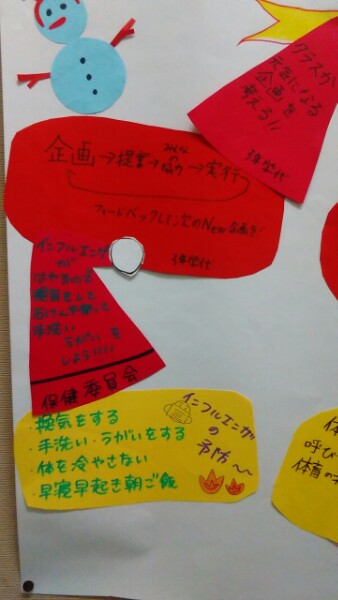 クラスが
元気になる
企画を
考える!!
企画→提案→みんなの協力→実行
フィードバックして次のNew企画を!
インフルエンザ
が
はやるので
換気をして
石けんを使って
手洗い
うがいを
しよう!!!!
保健委員会
インフルエンザ
の
予防〜〜
・換気をする
・手洗い・うがいをする
・体を冷やさない
・早寝早起き朝ご飯
呼び
体育の